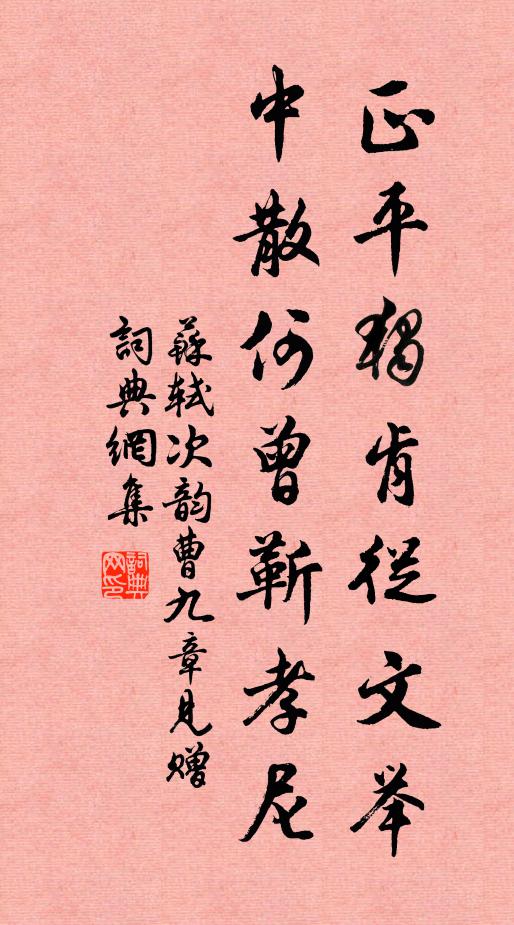 正平獨肯從文举
中散何曾靳孝尼
蘇轼次韵曹九章見赠
詞典網集
詞典网印